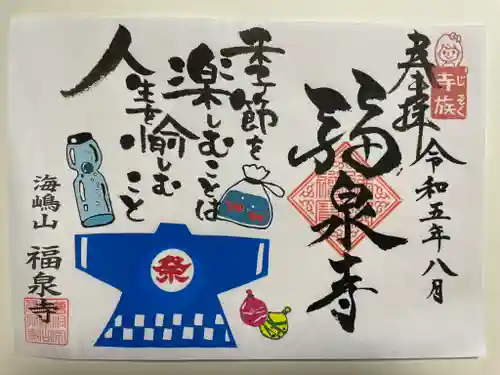 奉拝
じぞく
寺族
令和五年八月
福泉寺
季節を
楽しむことは
人生を愉しむ
こと
祭
海嶋山
福泉寺